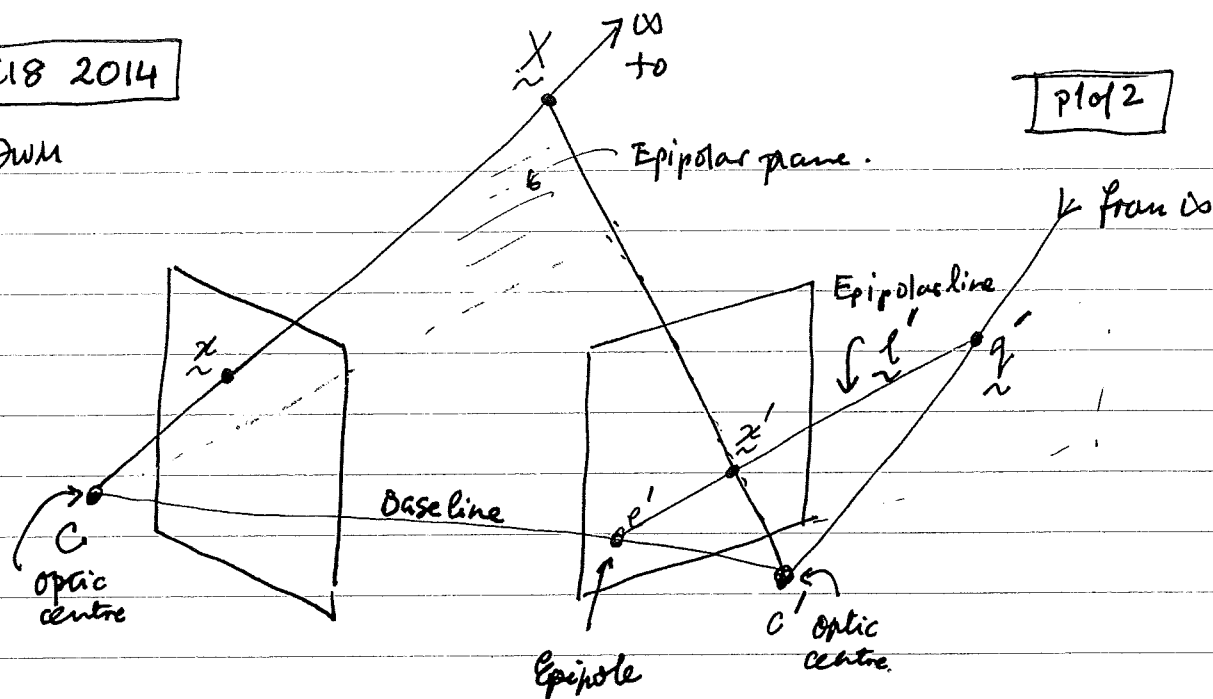 C18 2014
p1of2
DWM
X
∞
to
Epipolar plane.
from ∞
Epipolar line
l'
q'
x
x'
Baseline
e'
C
optic
centre
C'
optic
centre.
Epipole